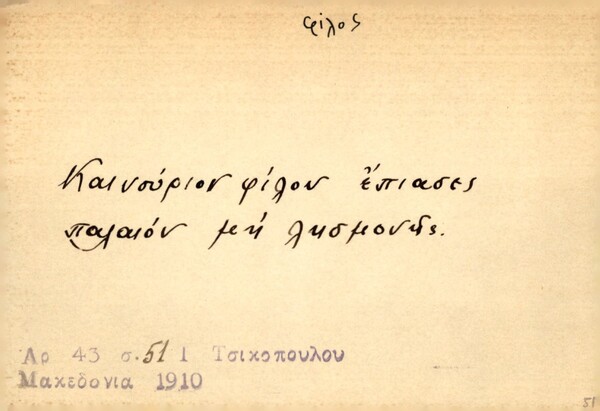 φίλος
Καινούριον φίλον ἔπιασες
παλαιόν μή λησμονῇς.
Αρ 43 σ. 51 Ι Τσικοπουλου
Μακεδονια 1910
51